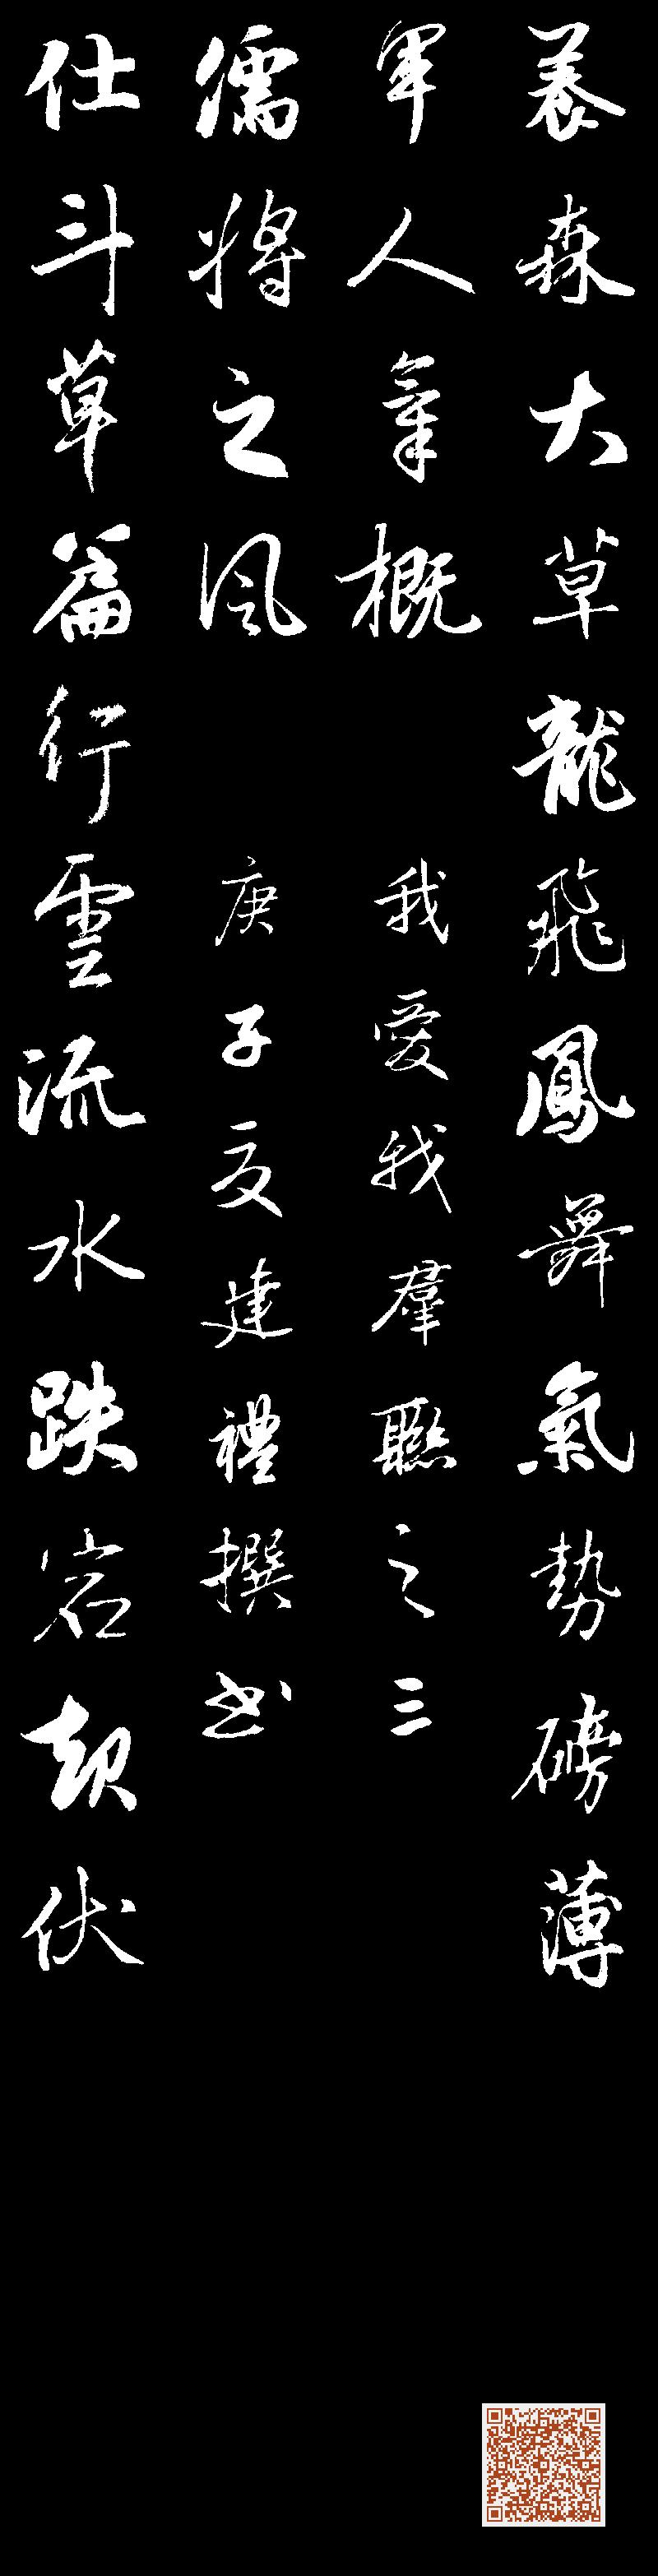 養森大草龍飛鳳舞氣勢磅薄
軍人氣概 我愛我羣聯之三
儒將之風 庚子夏建禮撰书
仕斗草篇行雲流水跌宕起伏